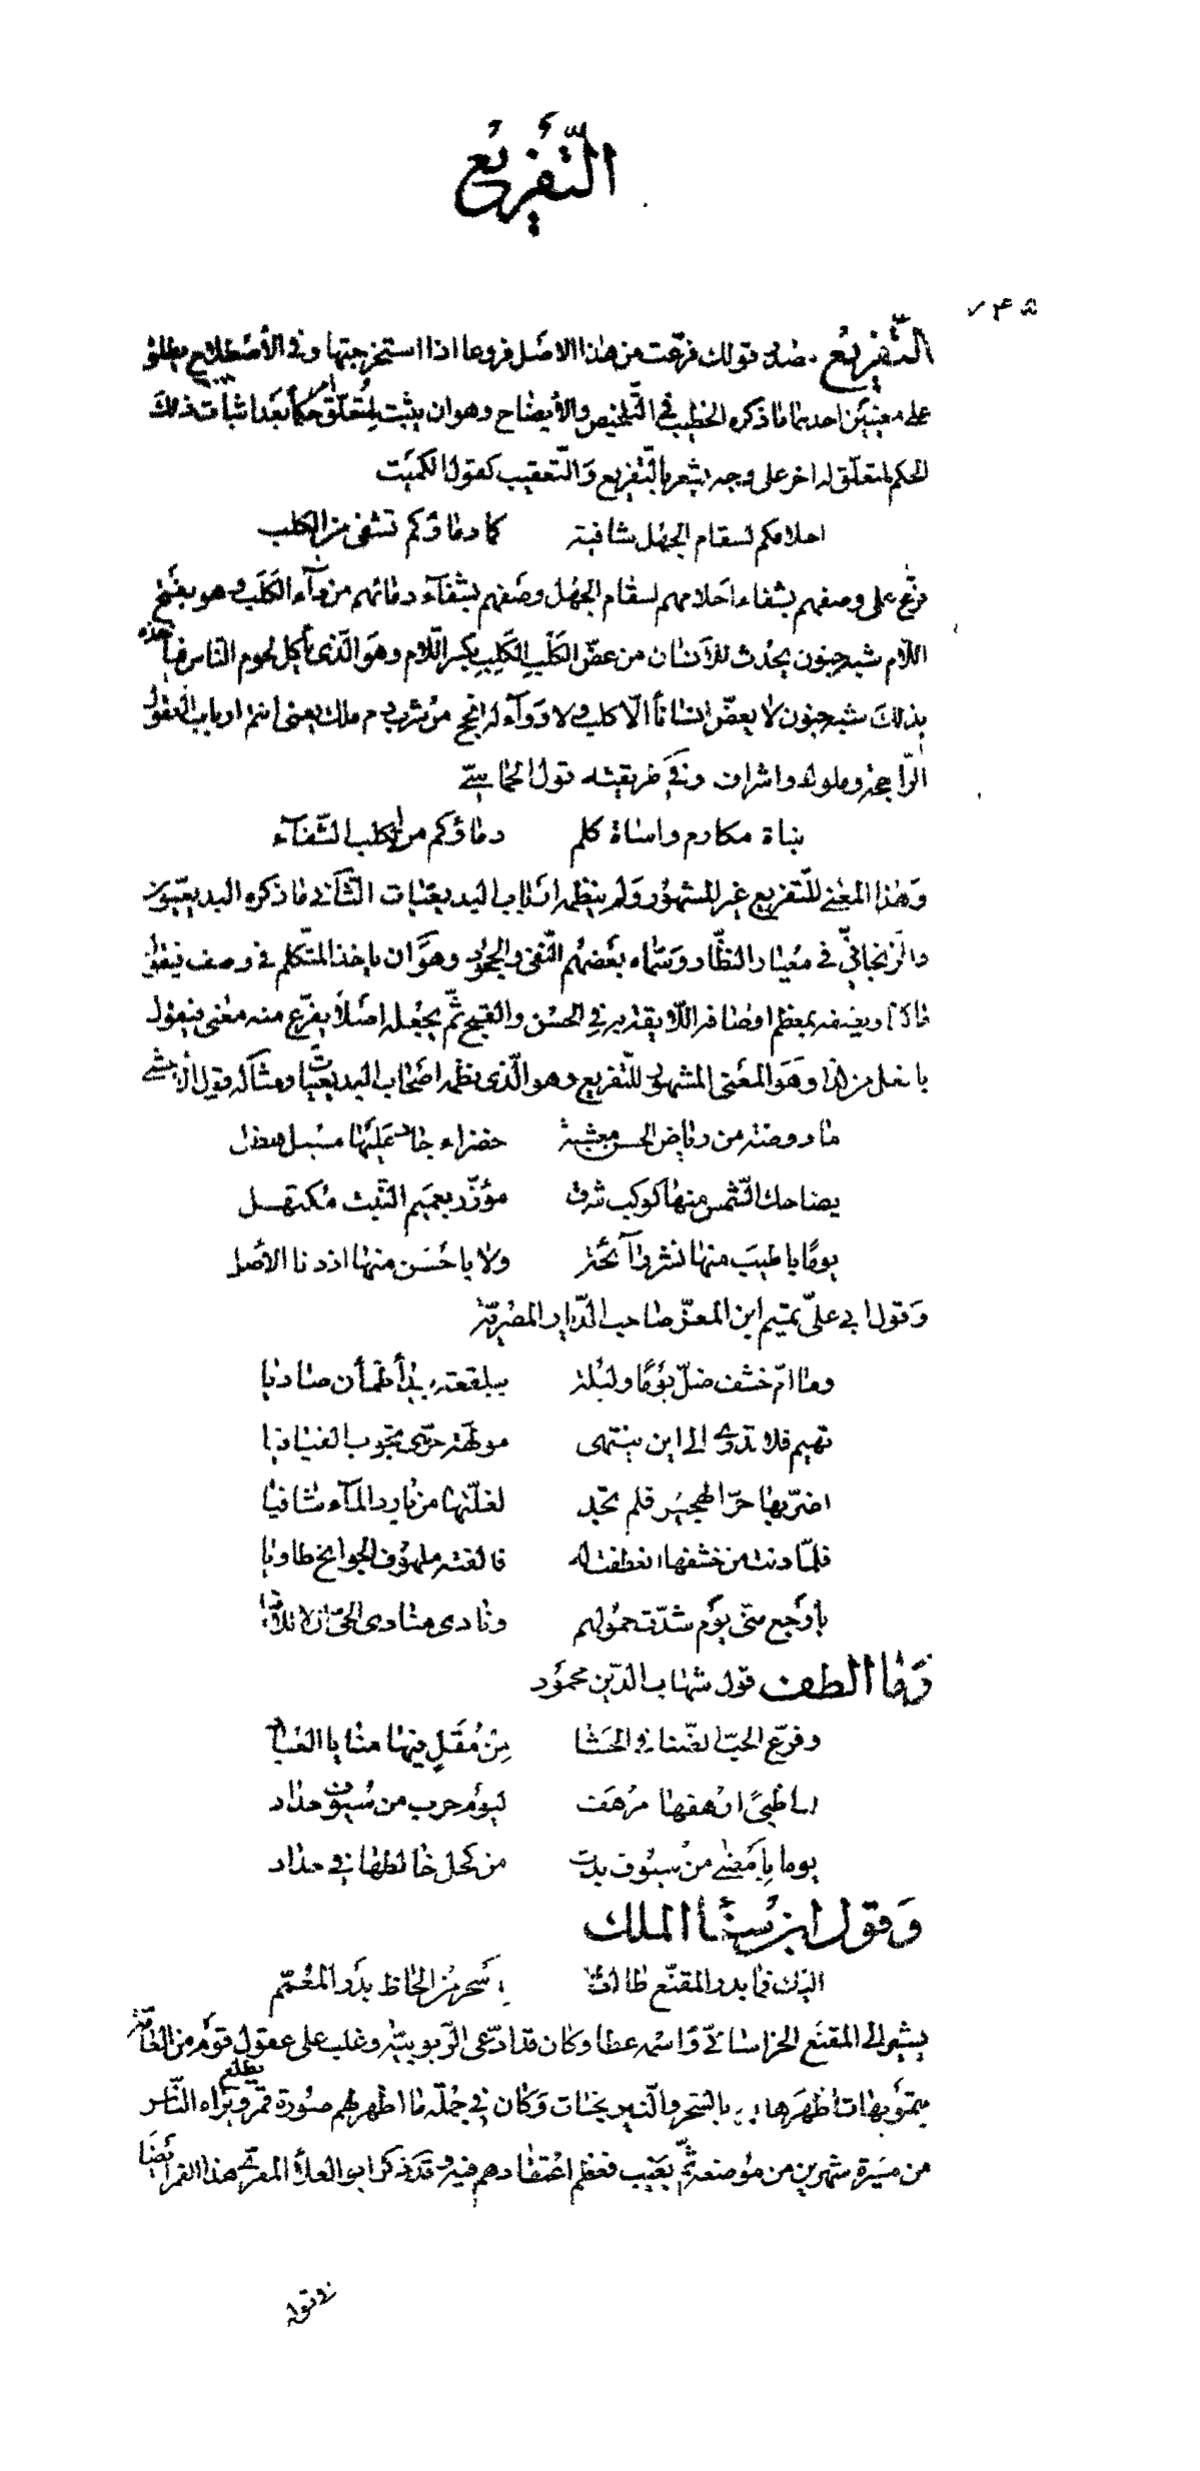 التّفريع
٧٤٥
التّفريع ضدّ قولك فرّعت من هذا الاصل فروعا اذا استخرجتها وفي الأصطلاح يطلق
على معنيين احدهما ما ذكره الخطيب في التّلخيص والأيضاح وهو ان يثبت لمتعلّق امر حكم بعد اثبات ذلك
الحكم لمتعلّق له اخر على وجه يشعر بالتّفريع والتّعقيب كقول الكميت
احلامكم لسقام الجهل شافية كما دماؤكم تشفى من الكلب
فرّع على وصفهم بشفاء احلامهم لسقام الجهل وصفهم بشفآء دمائهم من دآء الكَلَب وهو بفتح
اللّام شبه جنون يحدث للأنسان من عضّ الكَلْبِ الكَلِبِ بكسر اللّام وهو الّذى يأكل لحوم النّاس فيأخذه
بذلك شبه جنون لا يعضّ انسانا الّا كلب ولا دوآء له انجح من شرب دم ملك يعنى انتم ارباب العقول
الرّاجحة وملوك واشراف وفي طريقته قول الحماسيّ
بناة مكارم واساة كلم دماؤكم من الكلب الشّفآء
وهذا المعنى للتّفريع غير المشهور ولم ينظمه ارباب البديعيّات الثّانى ما ذكره البديعيّون
والزّنجانيّ في معيار النظّار وسمّاه بعضهم النّفى والجحود وهو ان ياخذ المتكلم في وصف فيقول
ما كذا ويصفه بمعظم اوصافه اللّايقة به في الحسن والقبح ثمّ يجعله اصلاً يفرّع منه معنى فيقول
بافعل من كذا وهو المعنى المشهور للتّفريع وهو الّذى نظمه اصحاب البديعيّات ومثاله قول الأعشى
ما روضة من رياض الحسن معشبة خضراء جاد عليها مسبل هطل
يضاحك الشّمس منها كوكب شرق مؤزّر بعميم النّبت مكتهل
يومًا باطيب منها نشر رآئحة ولا باحسن منها اذ دنا الأصل
وقول ابي عليّ تميم ابن المعزّ صاحب الدّيار المصريّة
وما امّ خشف ضلّ يومًا وليلة ببلقعة بيدأ ظمأن صاديا
تهيم فلا تدرى الى اين ينتهى مولّهة حرّى تجوب الفيافيا
اضرّ بها حرّ الهجير فلم تجد لغلّتها من بارد المآء شافيا
فلمّا دنت من خشفها انعطفت له فالفته ملهوف الجوانح طاويا
باوجع منّى يوم شدّت حمولهم ونادى منادى الحىّ ان لا تلاقيا
وما الطف قول شهاب الدّين محمود
وفرّع الحبّ لضّنا في الحشا مِنْ مُقَلٍ فيها منايا العباد
ما ظبىً ارهفها مرهف ليوم حرب من سيوف حداد
يوما بِأَمضى من سيوف بدت من كحل خالطها في حداد
وقول ابن سنا الملك
اليك فما بدر المقنّع طالعًا باسحر من الحاظ بدر المعمّم
يشير الى المقنّع الخراسانيّ واسمه عطا وكان قد ادّعى الرّبوبيّة وغلب على عقول قوم من العامّة
بتمويهات اظهرها بالسّحر والنّيرنجات وكان في جملة ما اظهر لهم صورة قمر يطلع ويراه النّاس
من مسيرة شهرين من موضعه ثمّ يغيب فعظم اعتقادهم فيه وقد ذكر ابو العلأ المعرّى هذا القمر ايضا
في قوله